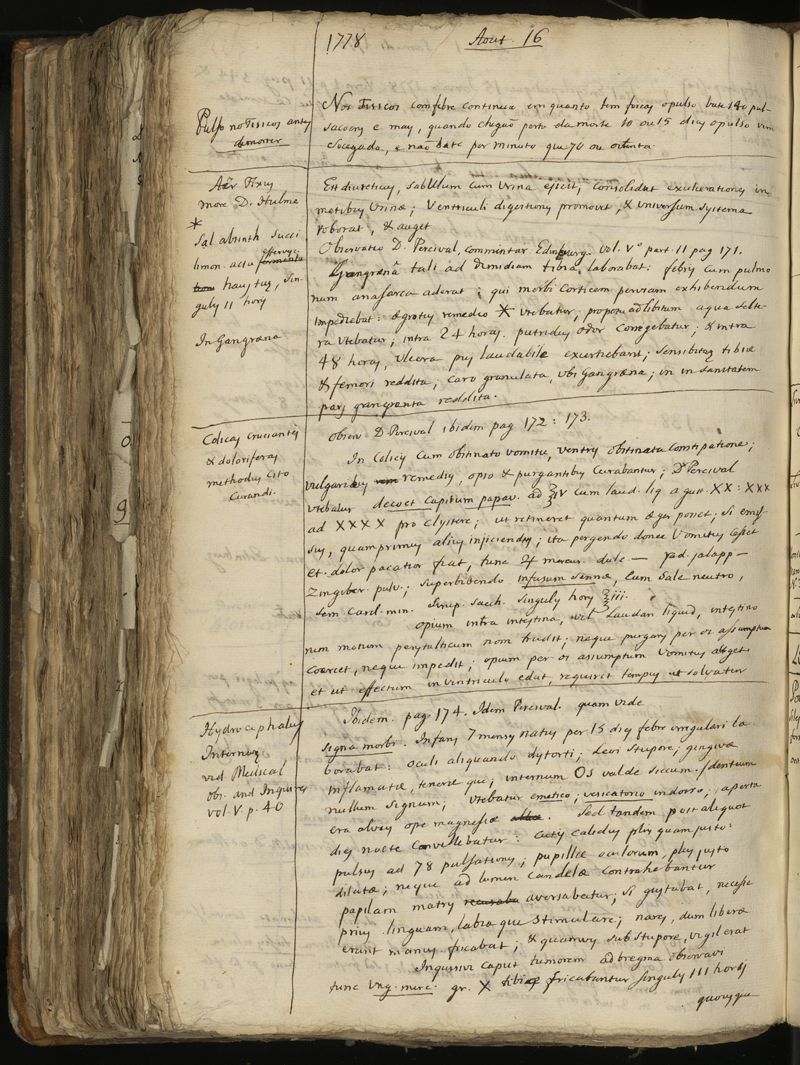 1778 Aout. 16
Pulso no Tisicos antes
de morrer
Nos Tisicos com febre continua em quanto tem forças o pulso bate 140 pul-
sacoens e mais, quando chegaõ perto da morte 10 ou 15 dias o pulso vem
socegado, e naõ bate por minuto que 70 ou oitenta.
Aër Fixus
more D. Hulme
*
Sal. absinth succi
limon. actu effervesc
fermenta
haustus, sin-
gulis 11 horis
In Gangræna
Est diureticus, sabulum cum urina ejicit, consolidat exulcerationes in
meatibus Urinæ; Ventriculi digestiones promovet, & universum systema
roborat, & auget
Observatio D. Percival, commintar Edinburg. Vol. V.° part. 11 pag 171.
Gangrænâ tali ad dimidiam tibia laborabat: febris cum pulmo
num anasarca aderat; qui morbi corticem peruvian exhibendum
impediebat: ægrotus remedio * utebatur, proportu ad libitum aqua selte-
ra utebatur; intra 24 horas. putridus odor corrigebatur; & intra
48 horas, ulcera pus laudabile excutiebant; sensibilitas tibiæ
& femori reddita; caro granulata, ubi Gangræna; in in sanitatem
pars gangrænta reddita.
Colicas cruciantes
& doloriferas
methodus cito
curandi.
observ. D Percival ibidem pag 172: 173.
In Colicis cum obstinato vomitu, ventris obstinata constipatione;
vulgaribus remediis, opio & purgantibus curabantur; Dr Percival
utebatur decoct capitum papav. ad ℥IV cum laud. liq. a gutt. XX: XXX
ad XXXX pro clystere; ut retineret quantum æger posset; si emis-
sus, quamprimus alius injiciendus; ita pergendo donec vomitus cesset
et dolor pacatior fiat, tunc ♃ mercur. dulc — rad. jalapp —
Zingiber. pulv.; superbibendo infusum sennæ, cum sale neutro,
sem card. min. sirup. sacch. singulis horis ℥iii.
opium intra intestina, vel Laudan liquid, intestino
rum motum perystalticum non tradit; neque purgans per os assumptum
coercet, neque impedit; opium per os assumptum vomitus auget
et ut effectum in ventriculo edat, requirit tempus ut solvatur
Hydrocephalus
Internus
vid Medical
obs. and Inquires
vol. V. p. 40
Ibidem. pag. 174. Idem Percival. quam vide
signa morbi. Infans 7 mensis natus per 15 dies febre irregulari la
borabat: oculi aliquando dystorti; levi stupore; gingivæ
inflamatæ, teneræ que; internum Os valde siccum. / dentium
nullum signum; utebatur emetico; vesicatorio in dorso; aperta
era alvus ope magnesiæ albæ. Sed tandem post aliquot
dies nocte convellebatur: cutis calidus plus quam justo:
pulsus ad 78 pulsationes; pupillæ oculorum, plus justo
dilatæ; neque ad lumen candelæ contrahebantur
papilam matris recusaba aversabatur; si gustabat, necesse
prius linguam, labia que stimulare; nares, dum libera
erant manus fricabat; & quamvis sub stupore, vigil erat
Inquisivi caput tumorem ad bregma observavi
tunc Ung. merc. gr. X tibiæ fricabantur singulis III horis
quousque